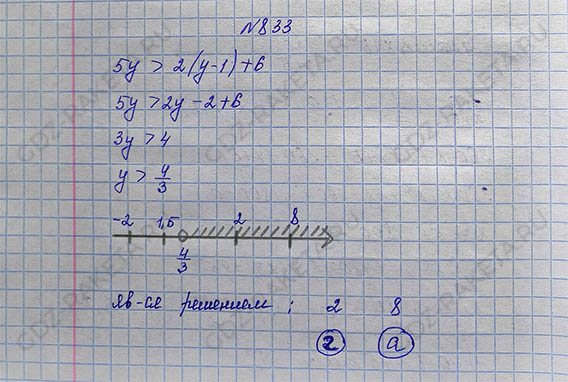 №833
5y > 2(y-1)+6
5y > 2y - 2 + 6
3y > 4
y > 4/3
-2 1,5 2 8
4/3
яв-ся решением ; 2 8
г а
GDZ-RAKETA.RU